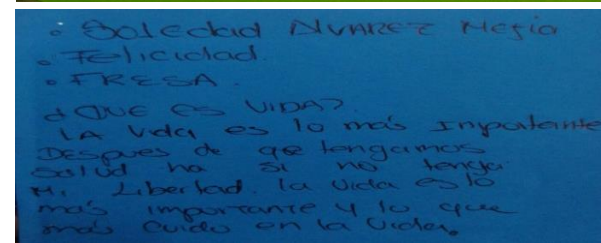 • Soledad Alvarez Mejia
• Felicidad.
• FRESA.
¿QUE ES VIDA?
LA Vida es lo más Importante
Despues de que tengamos
salud ha si no tenga
Mi Libertad la vida es lo
más importante y lo que
más cuido en la vida.